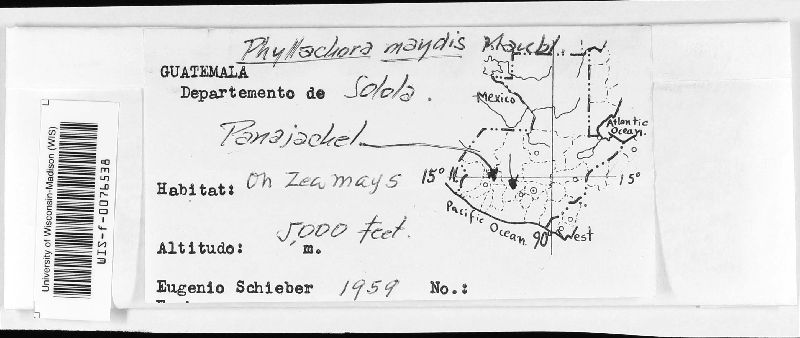 Phyllachora maydis Maubl.
GUATEMALA
Departemento de Solola.
Panajachel
Habitat: On Zea mays
5,000 feet.
Altitudo: m.
Eugenio Schieber 1959 No.:
Mexico
Atlantic
Ocean.
15° N
15°
Pacific Ocean
90° West
University of Wisconsin-Madison (WIS)
WIS-f-0076538